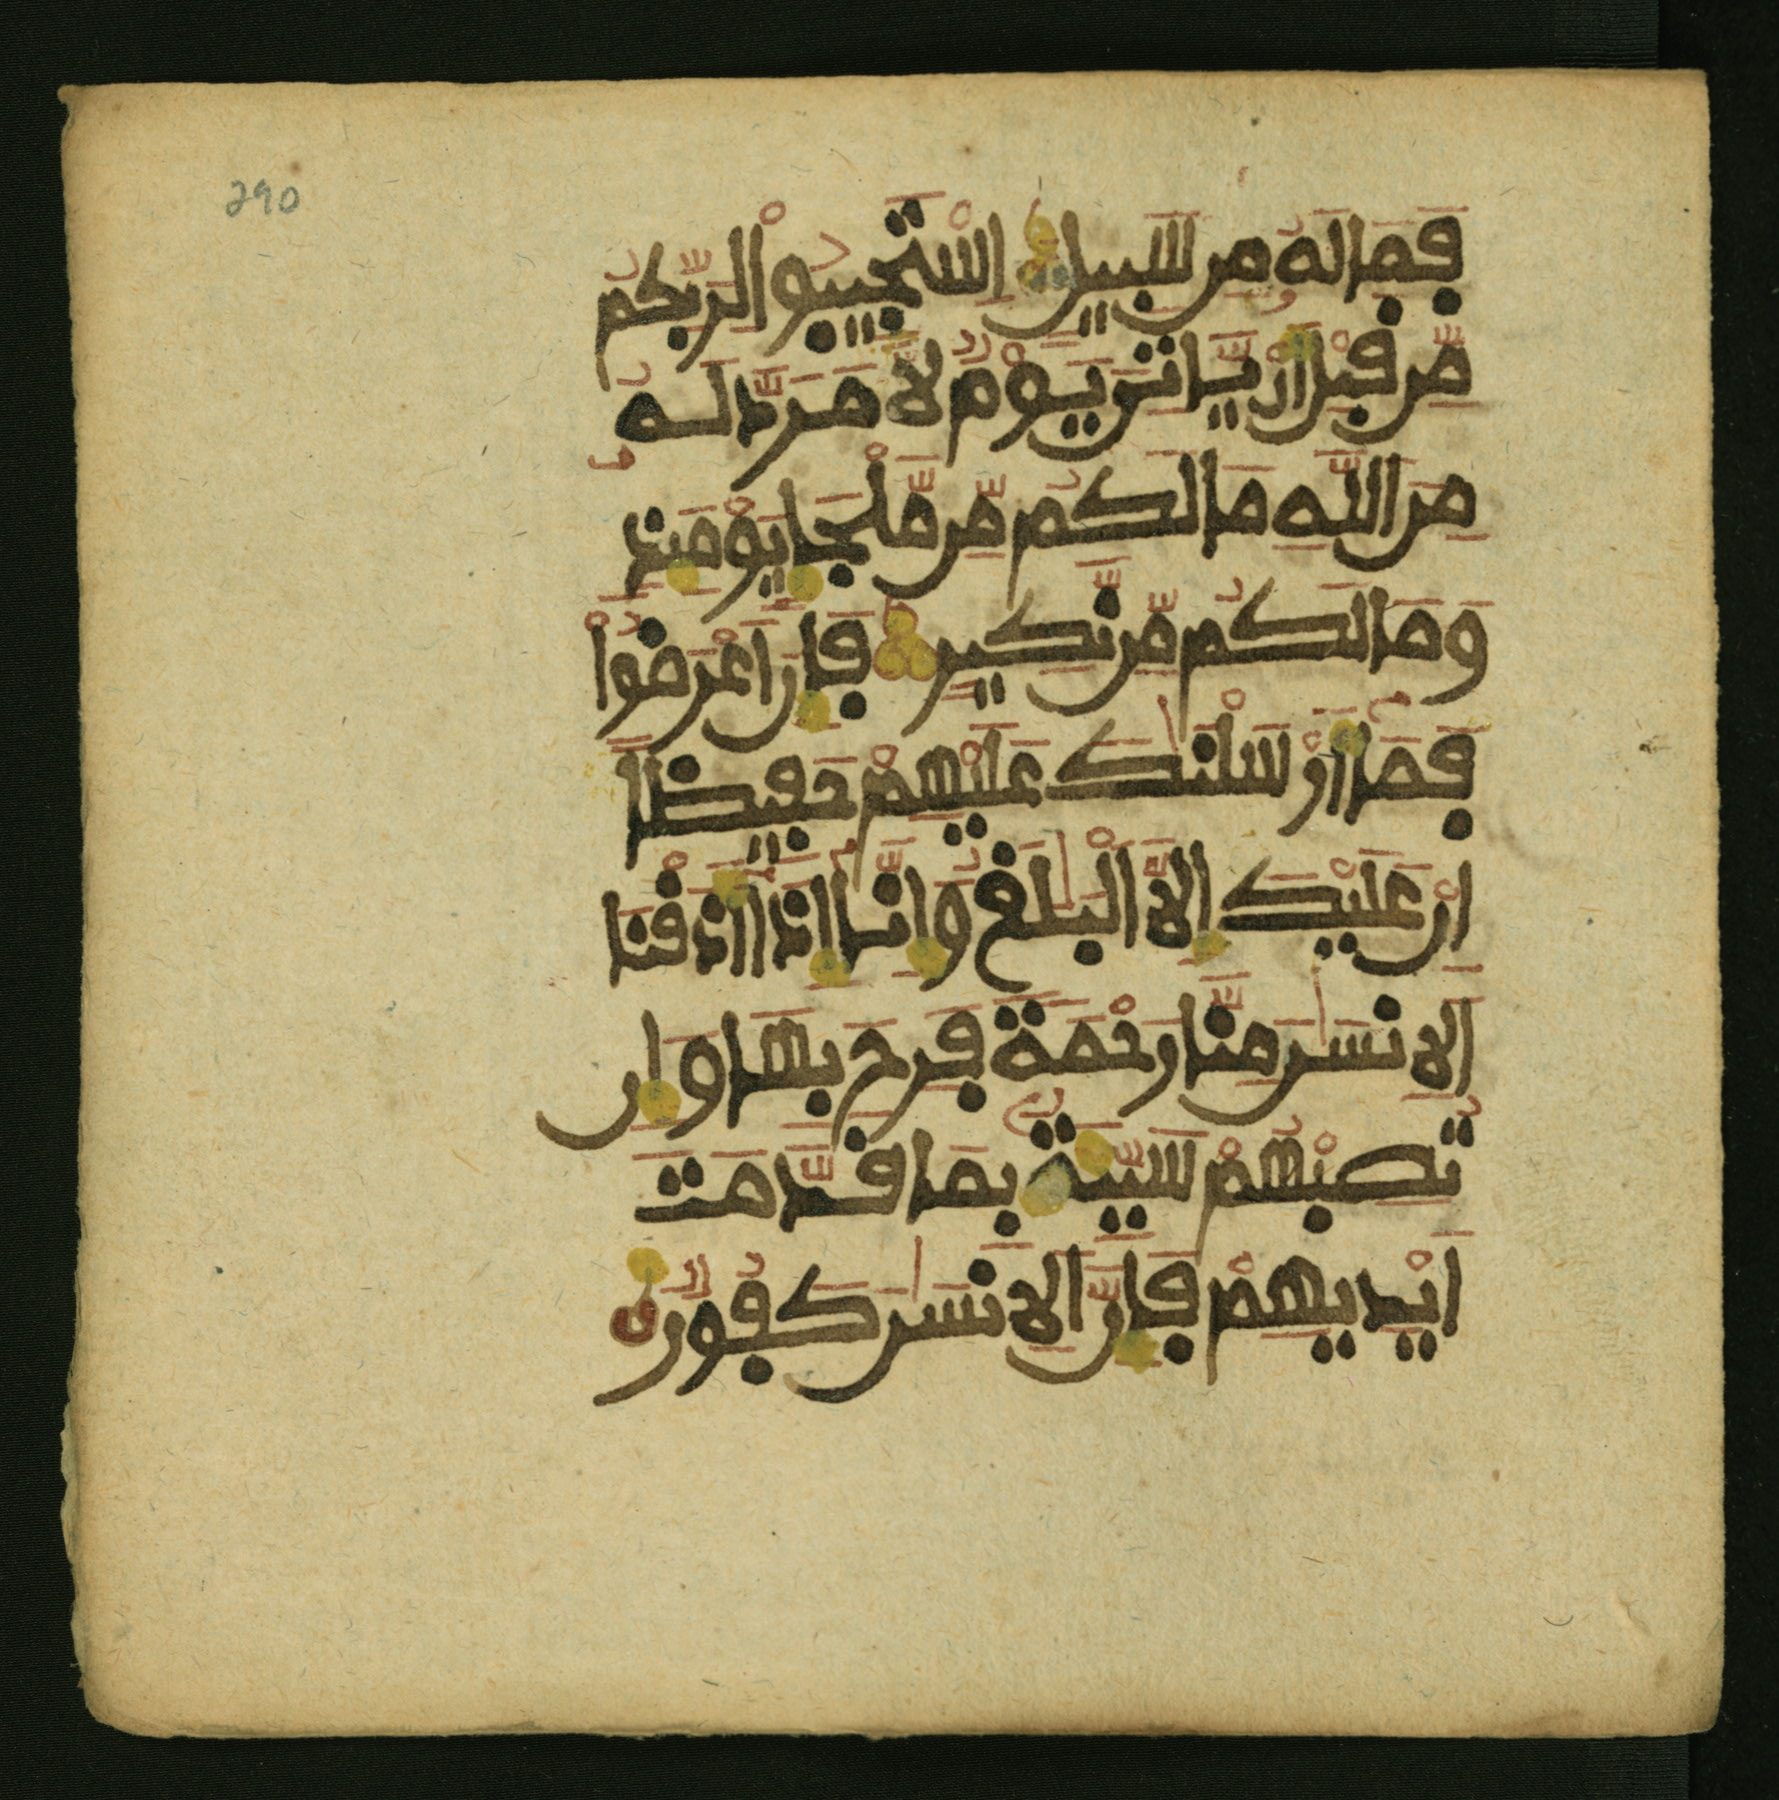 290
فَمَا لَهُ مِن سَبِيلٍ اسْتَجِيبُواْ لِرَبِّكُم
مِّن قَبْلِ أَنْ يَّاتِيَ يَوْمٌ لَّا مَرَدَّ لَهُ
مِنَ اللَّهِ مَا لَكُم مِّن مَّلْجَإٍ يَوْمَئِذٍ
وَمَا لَكُم مِّن نَّكِيرٍ فَإِنَ اَعْرَضُواْ
فَمَا أَرْسَلْنَٰكَ عَلَيْهِمْ حَفِيظًا
اِنْ عَلَيْكَ إِلَّا الْبَلَٰغُ وَإِنَّا إِذَا أَذَقْنَا
الِانسَٰنَ مِنَّا رَحْمَةً فَرِحَ بِهَا وَإِن
تُصِبْهُمْ سَيِّئَةٌ بِمَا قَدَّمَتَ
اَيْدِيهِمْ فَإِنَّ الِانسَٰنَ كَفُورٌ